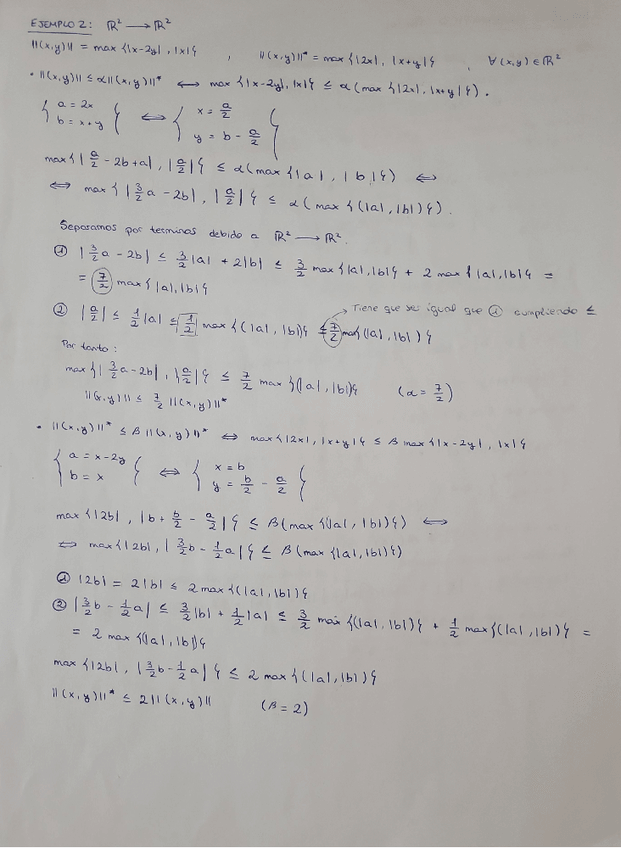 EJEMPLO 2: ℝ² ⟶ ℝ²
||(x,y)|| = max{|x-2y|, |x|} , ||(x,y)||* = max{|2x|, |x+y|} , ∀(x,y) ∈ ℝ²
• ||(x,y)|| ≤ α||(x,y)||* ⟺ max{|x-2y|, |x|} ≤ α(max{|2x|, |x+y|}).
{ a = 2x } ⟺ { x = a/2 }
{ b = x+y } { y = b - a/2 }
max{|a/2 - 2b + a|, |a/2|} ≤ α(max{|a|, |b|}) ⟺
⟺ max{|3/2 a - 2b|, |a/2|} ≤ α(max{(|a|, |b|)}).
Separamos por terminos debido a ℝ² ⟶ ℝ².
① |3/2 a - 2b| ≤ 3/2 |a| + 2|b| ≤ 3/2 max{|a|,|b|} + 2 max{|a|,|b|} =
= 7/2 max{|a|,|b|}
→ Tiene que ser igual que ① cumpliendo ≤
② |a/2| ≤ 1/2 |a| ≤ 1/2 max{(|a|, |b|)} ≤ 7/2 max{(|a|, |b|)}
Por tanto:
max{|3/2 a - 2b|, |a/2|} ≤ 7/2 max{(|a|, |b|)} (α = 7/2)
||(x,y)|| ≤ 7/2 ||(x,y)||*
• ||(x,y)||* ≤ β||(x,y)||* ⟺ max{|2x|, |x+y|} ≤ β max{|x-2y|, |x|}
{ a = x-2y } ⟺ { x = b }
{ b = x } { y = b/2 - a/2 }
max{|2b|, |b + b/2 - a/2|} ≤ β(max{(|a|, |b|)}) ⟺
⟺ max{|2b|, |3/2 b - 1/2 a|} ≤ β(max{(|a|, |b|)})
① |2b| = 2|b| ≤ 2 max{(|a|, |b|)}
② |3/2 b - 1/2 a| ≤ 3/2 |b| + 1/2 |a| ≤ 3/2 max{(|a|, |b|)} + 1/2 max{(|a|, |b|)} =
= 2 max{(|a|, |b|)}
max{|2b|, |3/2 b - 1/2 a|} ≤ 2 max{(|a|, |b|)}
||(x,y)||* ≤ 2||(x,y)|| (β = 2)